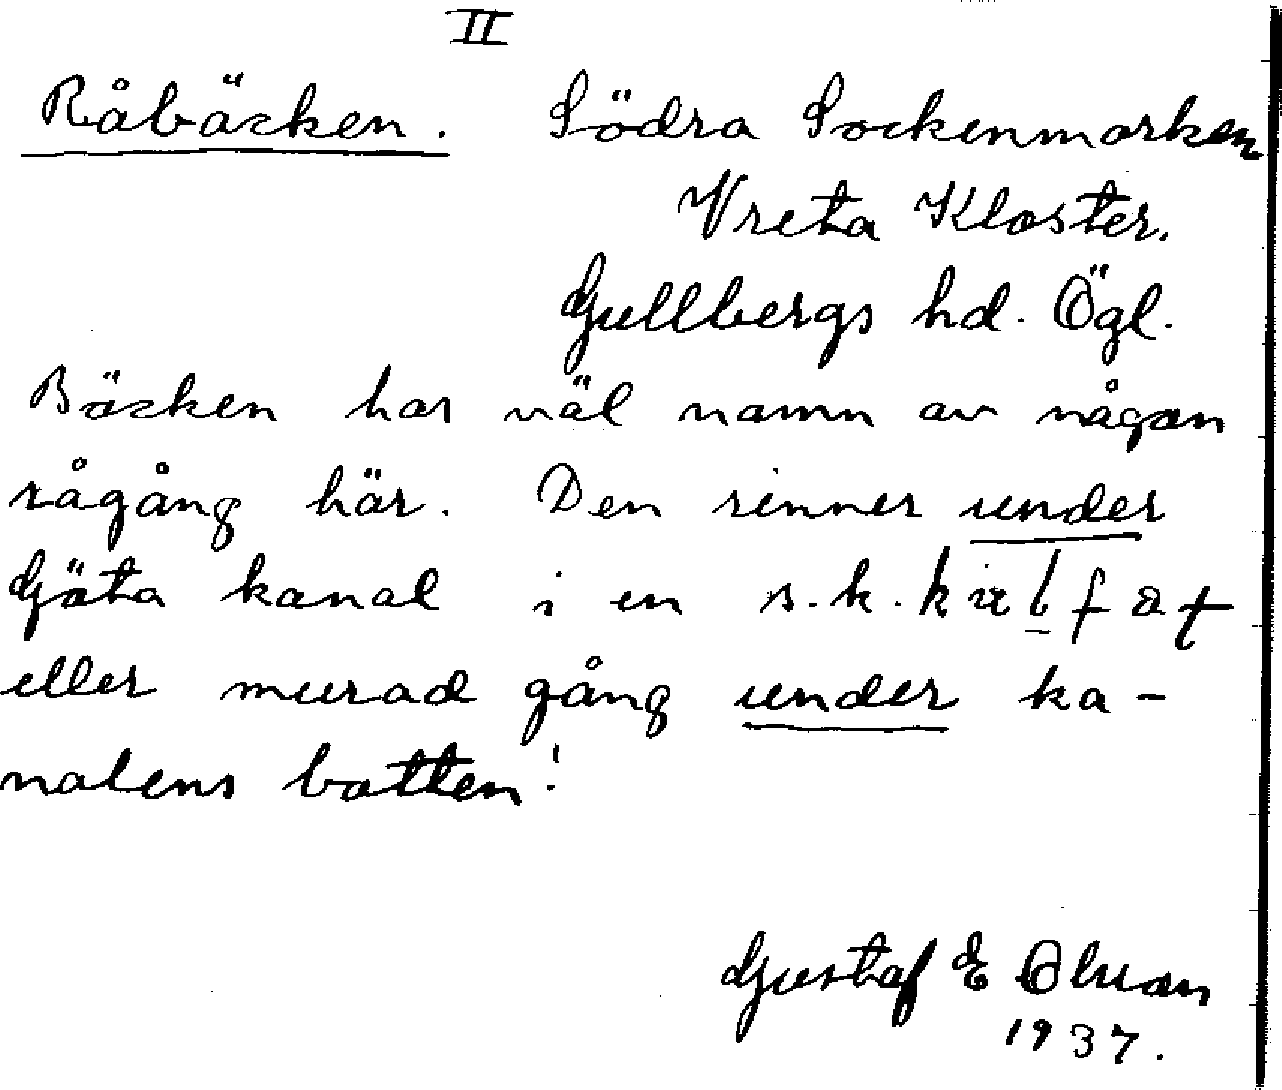 II
Råbäcken. Södra Sockenmarken
Vreta Kloster.
Gullbergs hd. Ögl.
Bäcken har väl namn av någon
rågång här. Den rinner under
Göta kanal i en s.k.
eller murad gång under ka-
nalens botten!
Gustaf E Olsson
1937.